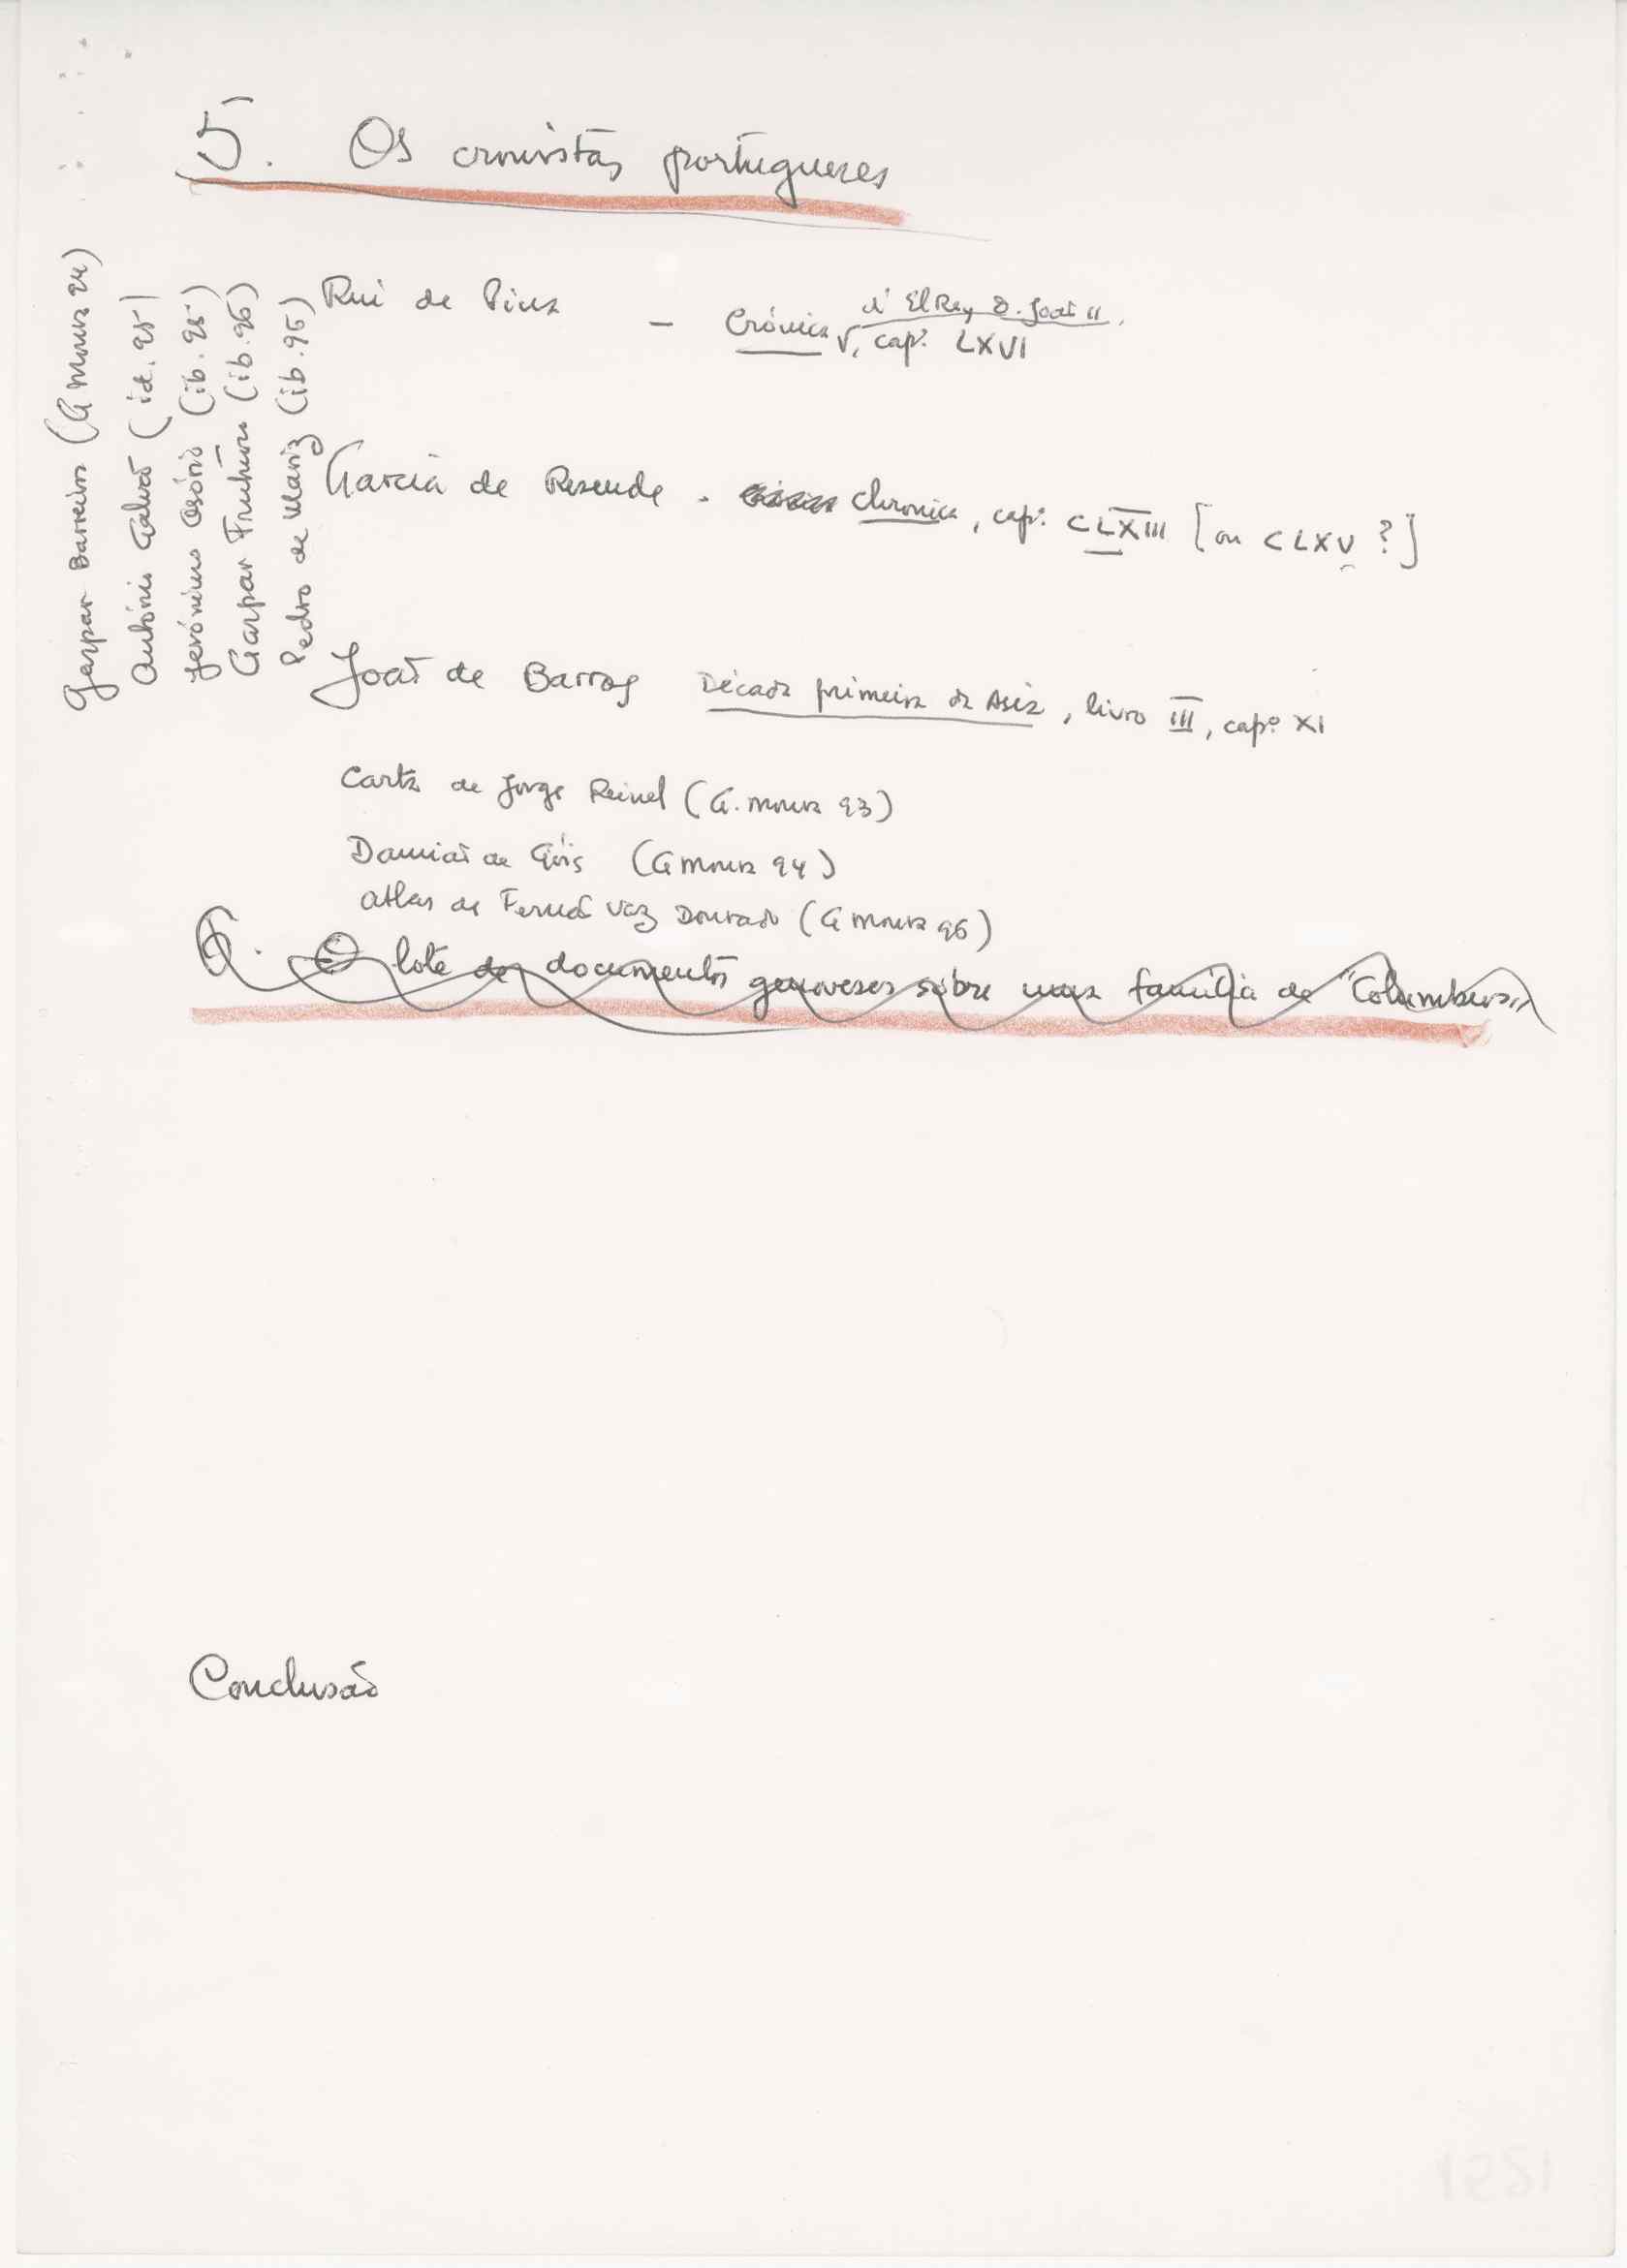 5. Os cronistas portugueses
Rui de Pina - Crónica d'ElRey D. João II,
V, cap.º LXVI
Garcia de Resende - Chronica, cap.º CLXIII [ou CLXV ?]
João de Barros Década primeira da Asia, livro III, cap.º XI
Carta de Jorge Reinel (G. Moura 93)
Damião de Góis (G Moura 94)
Atlas de Fernão Vaz Dourado (G Moura 96)
6. O lote de documentos genoveses sobre uma família de "Columbus"
Conclusão
Gaspar Barreiros (G Moura 94)
António Galvão (id. 95)
Jerónimo Osório (ib. 95)
Gaspar Frutuoso (ib. 96)
Pedro de Mariz (ib. 96)